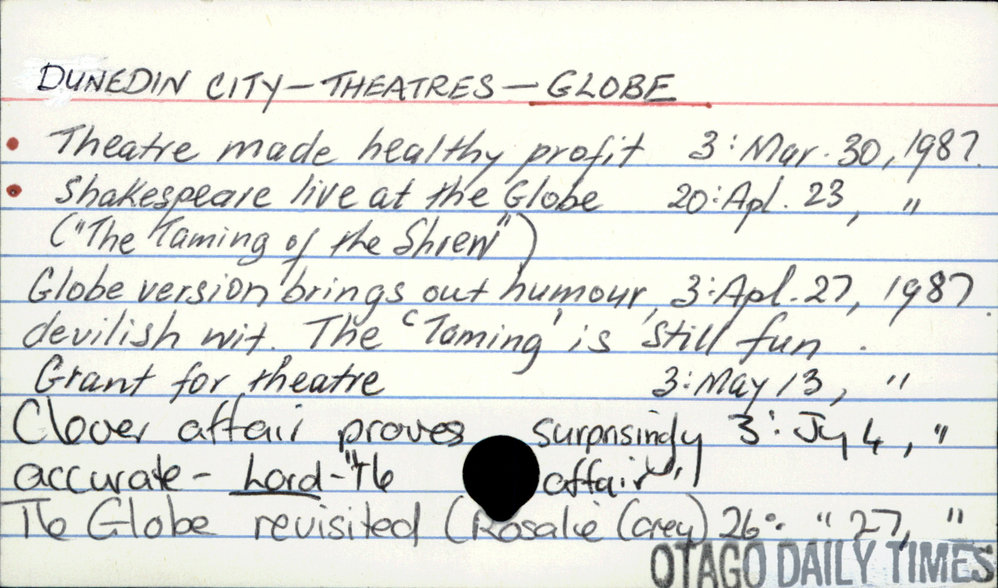 DUNEDIN CITY - THEATRES - GLOBE
• Theatre made healthy profit 3: Mar. 30, 1987.
• Shakespeare live at the Globe 20: Apl. 23, "
("The Taming of the Shrew")
Globe version brings out humour, 3: Apl. 27, 1987.
devilish wit. The 'Taming' is still fun.
Grant for theatre 3: May 13, "
Clover affair proves surprisingly 3: Jy 4, "
accurate - Lord - "The affair"
The Globe revisited (Rosalie Carey) 26: " 27, "
OTAGO DAILY TIMES